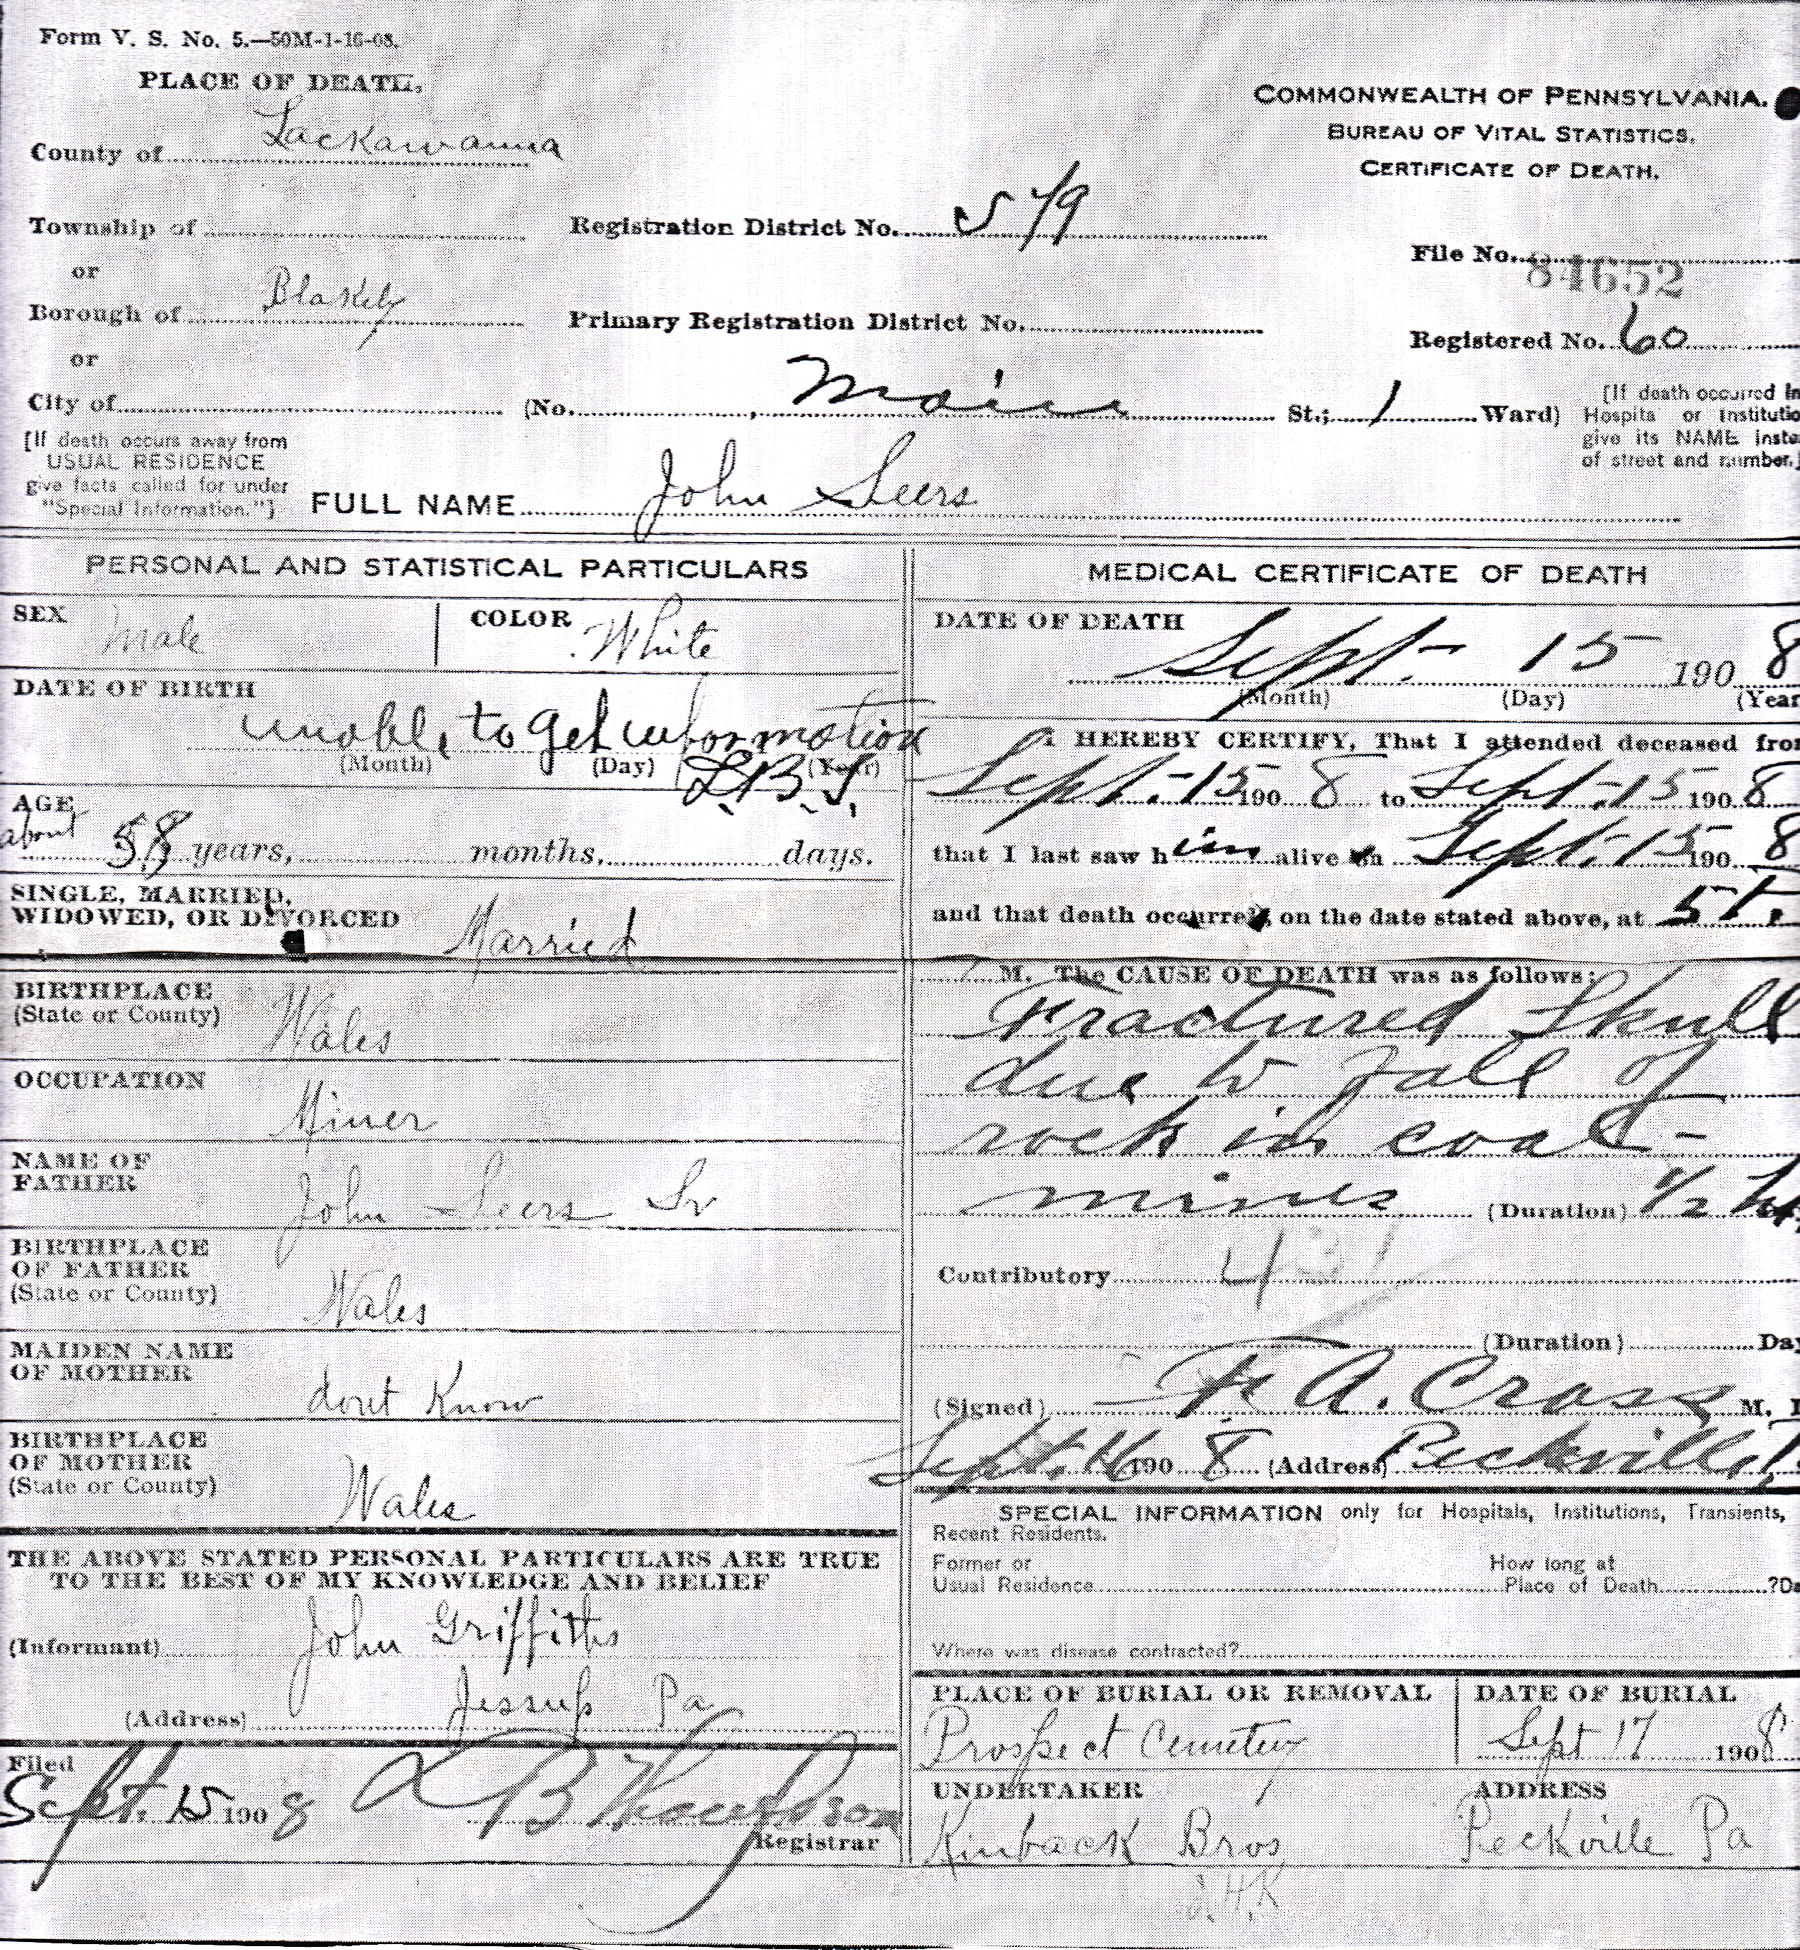 Form V. S. No. 5.—50M-1-16-08.
PLACE OF DEATH,
COMMONWEALTH OF PENNSYLVANIA.
BUREAU OF VITAL STATISTICS.
CERTIFICATE OF DEATH.
County of Lackawanna
Township of
Registration District No. 579
or
File No. 84652
Borough of Blakely
Primary Registration District No.
Registered No. 60
or
City of (No. , Main St.; 1 Ward)
[If death occurred in
Hospita or Institutio
give its NAME inste
of street and number.]
[If death occurs away from
USUAL RESIDENCE
give facts called for under
"Special Information."]
FULL NAME John Seers
PERSONAL AND STATISTICAL PARTICULARS
SEX Male
COLOR White
DATE OF BIRTH
unable to get information
(Month) (Day) (Year)
L.B.T.
AGE
about 58 years, months, days.
SINGLE, MARRIED,
WIDOWED, OR DIVORCED Married
BIRTHPLACE
(State or County) Wales
OCCUPATION Miner
NAME OF
FATHER John Seers Sr
BIRTHPLACE
OF FATHER
(State or County) Wales
MAIDEN NAME
OF MOTHER dont Know
BIRTHPLACE
OF MOTHER
(State or County) Wales
THE ABOVE STATED PERSONAL PARTICULARS ARE TRUE
TO THE BEST OF MY KNOWLEDGE AND BELIEF
(Informant) John Griffiths
(Address) Jessup Pa
Filed
Sept. 15 1908 L B Thompson
Registrar
MEDICAL CERTIFICATE OF DEATH
DATE OF DEATH
Sept- 15 1908
(Month) (Day) (Year
I HEREBY CERTIFY, That I attended deceased from
Sept.-15 1908 to Sept.-15 1908
that I last saw him alive on Sept.-15 1908
and that death occurred, on the date stated above, at 5
M. The CAUSE OF DEATH was as follows:
Fractured Skull
due to fall of
rock in coal-
mines (Duration) 1/2 hr.
Contributory 431
(Duration) Day
(Signed) F. A. Cross M. D
Sept. 16 1908 (Address) Peckville, P
SPECIAL INFORMATION only for Hospitals, Institutions, Transients,
Recent Residents.
Former or
Usual Residence
How long at
Place of Death ?Da
Where was disease contracted?
PLACE OF BURIAL OR REMOVAL
Prospect Cemetery
DATE OF BURIAL
Sept 17 1908
UNDERTAKER
Kinback Bros
J.H.K
ADDRESS
Peckville Pa